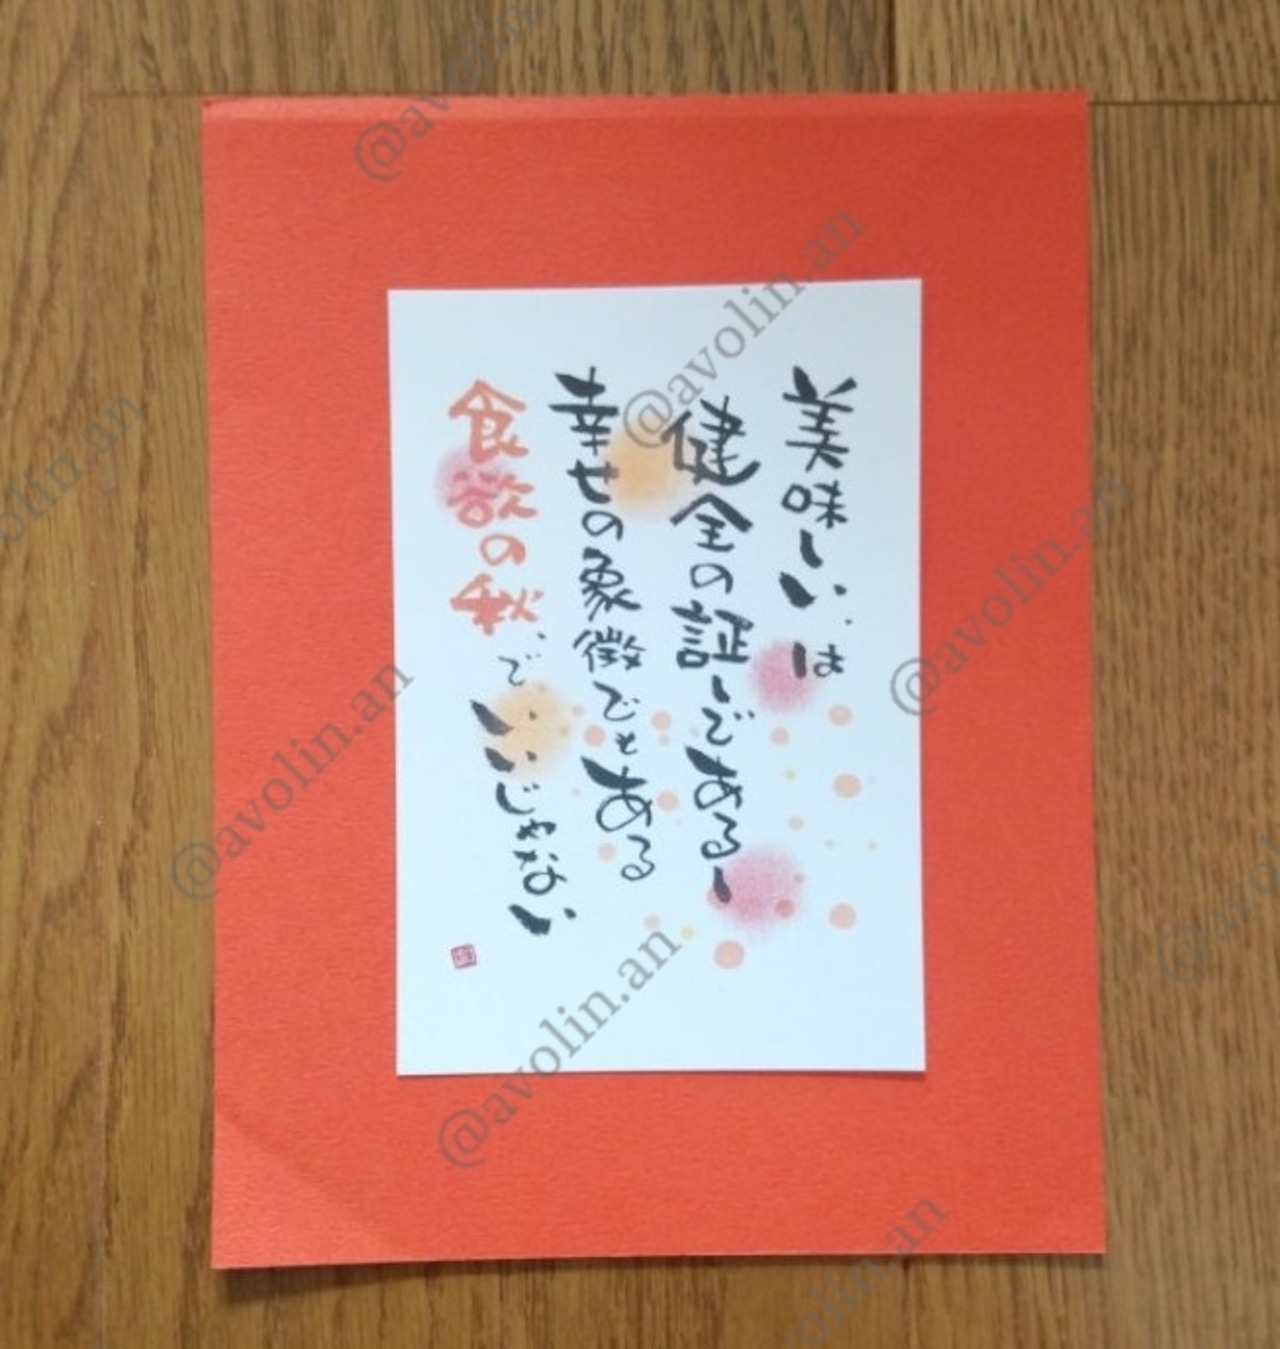 美味しいは
健全の証しであるし
幸せの象徴でもある
食欲の秋、でいいじゃない
@avolin.an
@avolin.an
@avolin.an
@avolin.an
@avolin.an